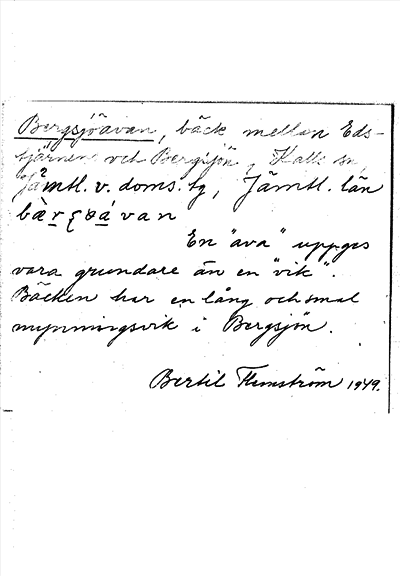 Bergsjöavan, bäck mellan Eds-
tjärnen och Bergsjön, Kalls sn,
Jämtl. v. doms. tg, Jämtl. län
En "ava" uppges
vara grundare än en "vik".
Bäcken har en lång och smal
mynningsvik i Bergsjön.
Bertil Flemström 1949.